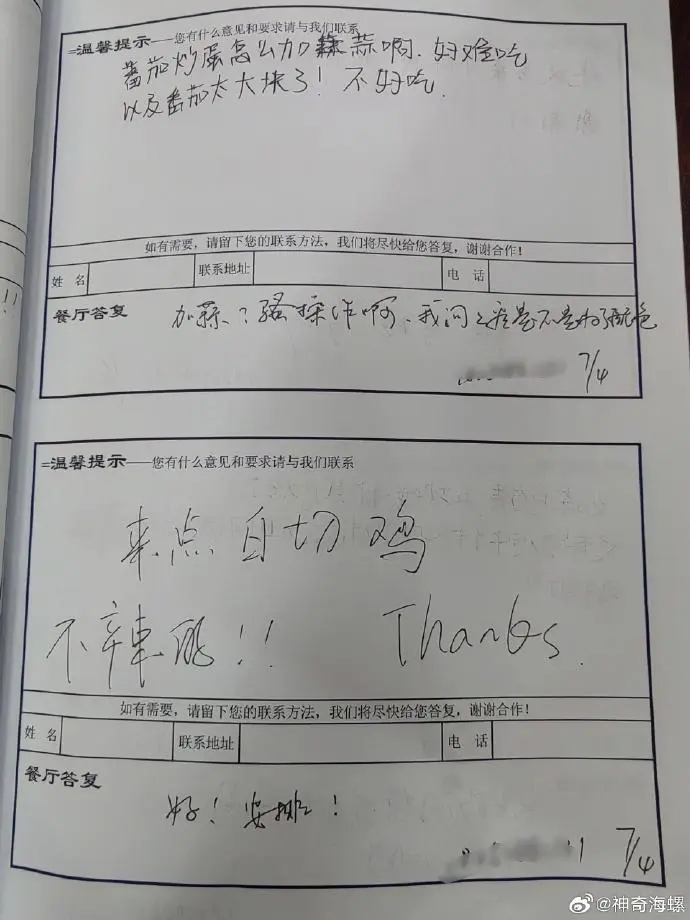 =温馨提示——您有什么意见和要求请与我们联系
番茄炒蛋怎么加蒜啊.好难吃
以及番茄太大块了！不好吃.
如有需要，请留下您的联系方法，我们将尽快给您答复，谢谢合作！
姓 名 联系地址 电 话
餐厅答复
加蒜？骚操作啊、我问之后是不是为了配色
7/4
=温馨提示——您有什么意见和要求请与我们联系
来点白切鸡
不辣的!! Thanks.
如有需要，请留下您的联系方法，我们将尽快给您答复，谢谢合作！
姓 名 联系地址 电 话
餐厅答复
好！安排！
7/4
@神奇海螺